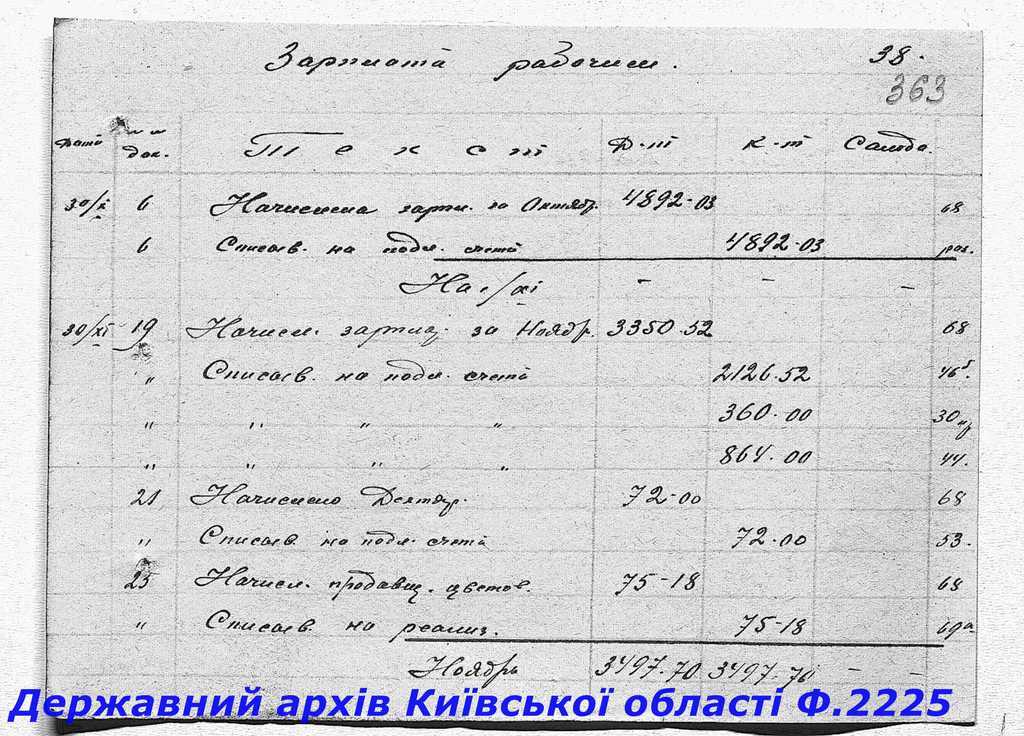 Зарплата рабочим. 38.
363
Дата № № док. Текст Д-т К-т Сальдо.
30/X 6 Начислена зарпл. за Октябр. 4892-03 68
6 Списыв. на подл. счета 4892-03 раз.
На 1/XI - - -
30/XI 19 Начисл. зарплат. за Ноябр. 3350.52 68
" Списыв. на подл. счета 2126.52 46б.
" " " " 360.00 30
" " " " 864.00 44.
21 Начислено 72-00 68
" Списыв. на подл. счета 72.00 53.
25 Начисл. продавщ. цветов. 75-18 68
" Списыв. на реализ. 75-18 69а.
Ноябрь 3497.70 3497.70 - -
Державний архів Київської області Ф.2225